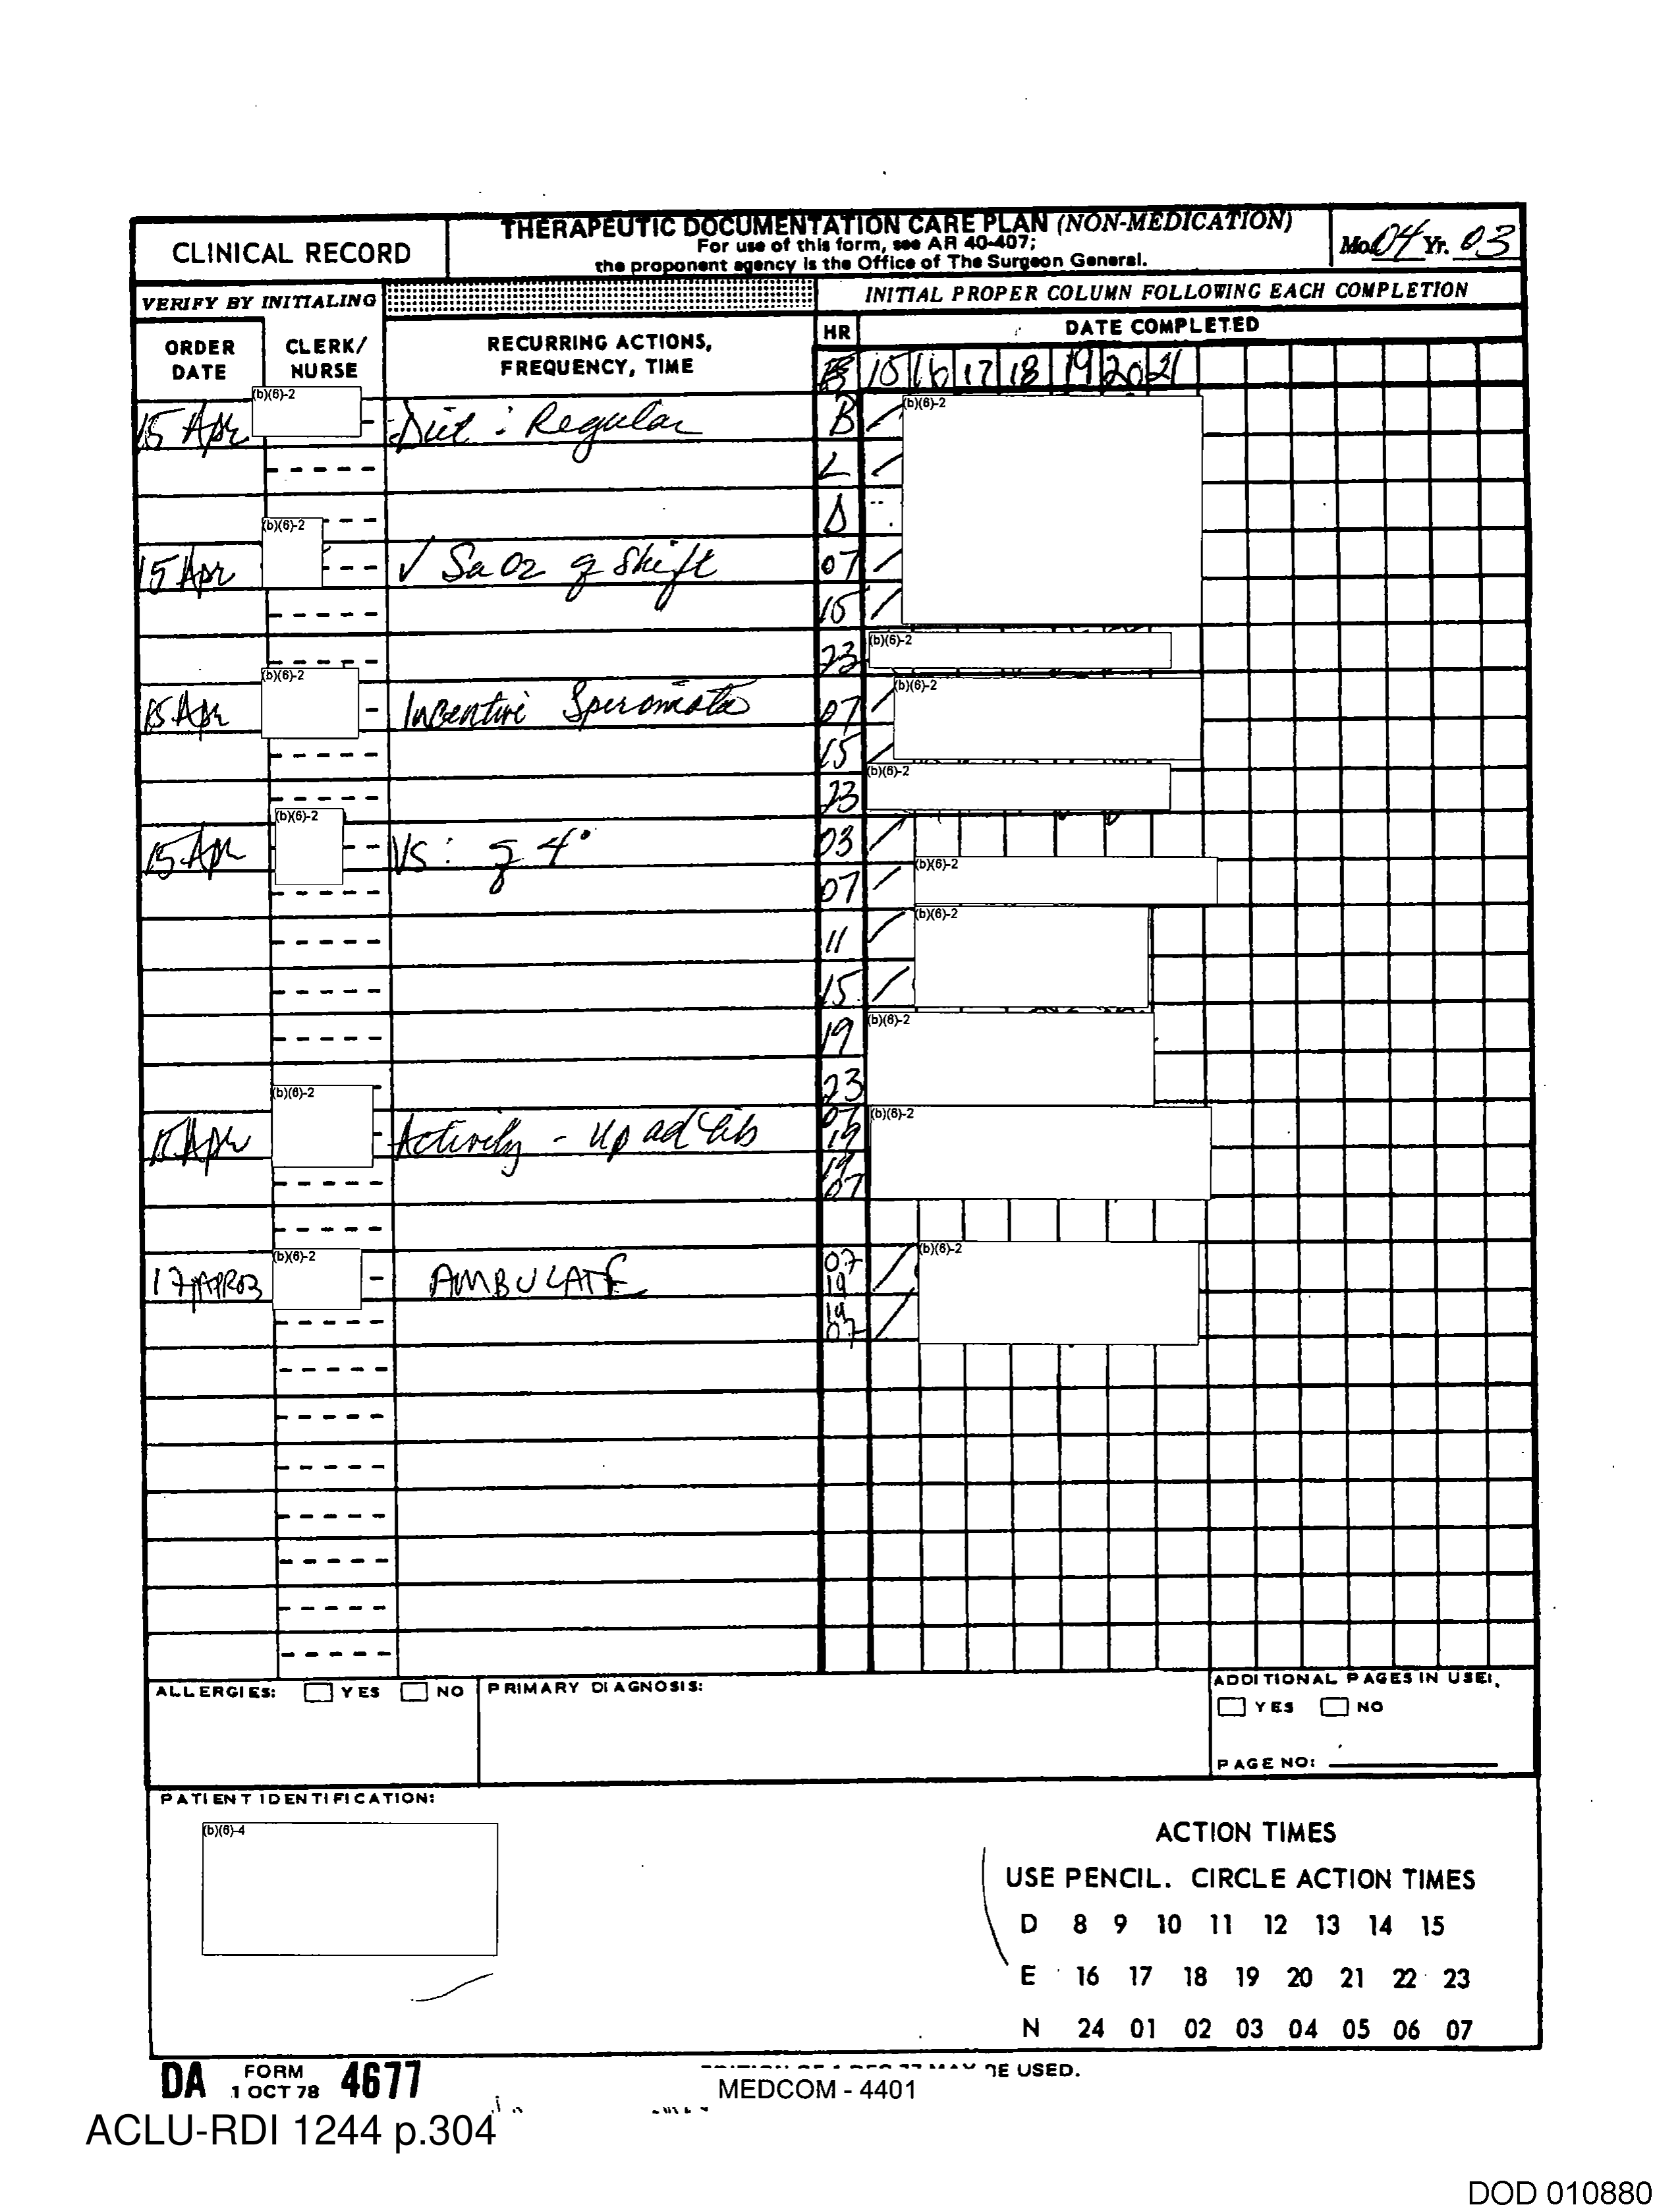 CLINICAL RECORD
THERAPEUTIC DOCUMENTATION CARE PLAN (NON-MEDICATION)
For use of this form, see AR 40-407;
the proponent agency is the Office of The Surgeon General.
Mo. 04 Yr. 03
VERIFY BY INITIALING
INITIAL PROPER COLUMN FOLLOWING EACH COMPLETION
ORDER DATE
CLERK/ NURSE
RECURRING ACTIONS, FREQUENCY, TIME
HR
DATE COMPLETED
15 16 17 18 19 20 21
15 Apr (b)(6)-2 Diet : Regular B (b)(6)-2
L
D
15 Apr (b)(6)-2 √ SaO2 q shift 07
15
23 (b)(6)-2
15 Apr (b)(6)-2 Incentive 07 (b)(6)-2
15
23 (b)(6)-2
15 Apr (b)(6)-2 VS : q 4° 03
07 (b)(6)-2
11 (b)(6)-2
15
19 (b)(6)-2
23
Apr (b)(6)-2 Activity - up ad lib 07 19 (b)(6)-2
19 07
17 APR03 (b)(6)-2 AMBULATE 07 19 (b)(6)-2
19 07
ALLERGIES: YES NO
PRIMARY DIAGNOSIS:
ADDITIONAL PAGES IN USE:
YES NO
PAGE NO:
PATIENT IDENTIFICATION:
(b)(6)-4
ACTION TIMES
USE PENCIL. CIRCLE ACTION TIMES
D 8 9 10 11 12 13 14 15
E 16 17 18 19 20 21 22 23
N 24 01 02 03 04 05 06 07
DA FORM 1 OCT 78 4677
BE USED.
MEDCOM - 4401
ACLU-RDI 1244 p.304
DOD 010880